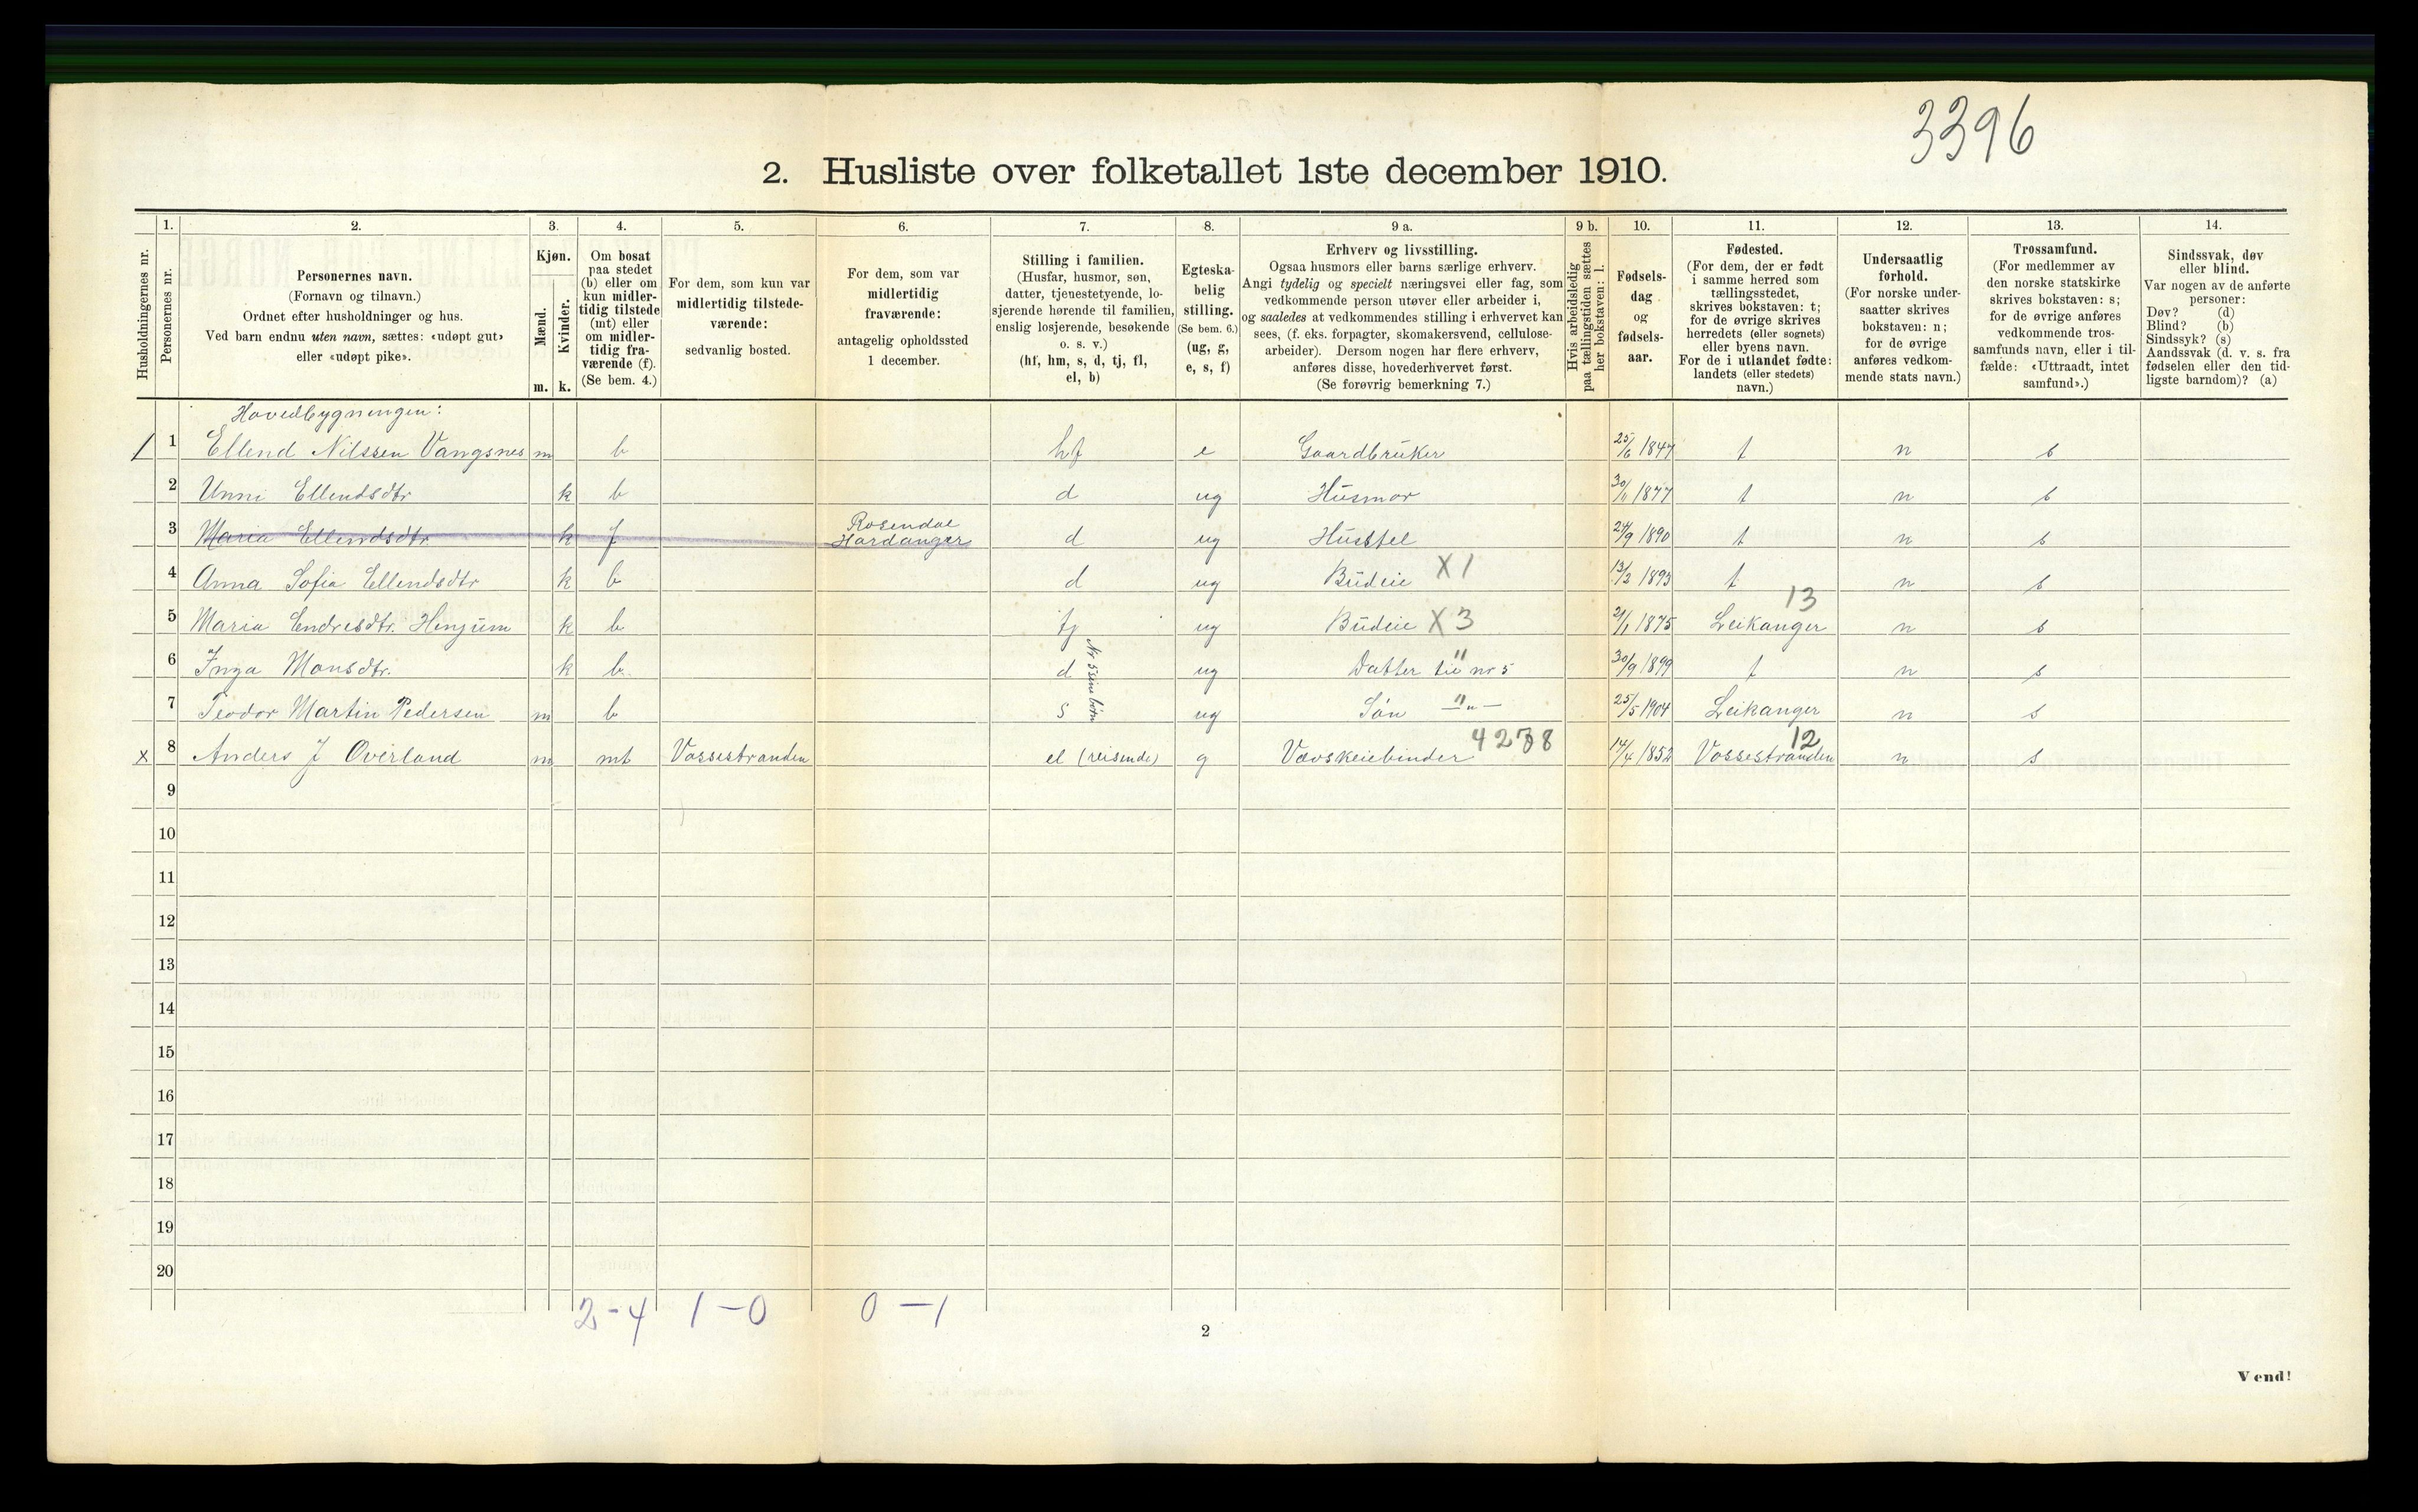 3396
2. Husliste over folketallet 1ste december 1910.
Husholdningernes nr.
1.
Personernes nr.
2.
Personernes navn.
(Fornavn og tilnavn.)
Ordnet efter husholdninger og hus.
Ved barn endnu uten navn, sættes: «udøpt gut»
eller «udøpt pike».
3.
Kjøn.
Mænd.
m.
Kvinder.
k.
4.
Om bosat
paa stedet
(b) eller om
kun midler-
tidig tilstede
(mt) eller
om midler-
tidig fra-
værende (f).
(Se bem. 4.)
5.
For dem, som kun var
midlertidig tilstede-
værende:
sedvanlig bosted.
6.
For dem, som var
midlertidig
fraværende:
antagelig opholdssted
1 december.
7.
Stilling i familien.
(Husfar, husmor, søn,
datter, tjenestetyende, lo-
sjerende hørende til familien,
enslig losjerende, besøkende
o. s. v.)
(hf, hm, s, d, tj, fl,
el, b)
8.
Egteska-
belig
stilling.
(Se bem. 6.)
(ug, g,
e, s, f)
9 a.
Erhverv og livsstilling.
Ogsaa husmors eller barns særlige erhverv.
Angi tydelig og specielt næringsvei eller fag, som
vedkommende person utøver eller arbeider i,
og saaledes at vedkommendes stilling i erhvervet kan
sees, (f. eks. forpagter, skomakersvend, cellulose-
arbeider). Dersom nogen har flere erhverv,
anføres disse, hovederhvervet først.
(Se forøvrig bemerkning 7.)
9 b.
Hvis arbeidsledig
paa tællingstiden sættes
her bokstaven: l.
10.
Fødsels-
dag
og
fødsels-
aar.
11.
Fødested.
(For dem, der er født
i samme herred som
tællingsstedet,
skrives bokstaven: t;
for de øvrige skrives
herredets (eller sognets)
eller byens navn.
For de i utlandet fødte:
landets (eller stedets)
navn.)
12.
Undersaatlig
forhold.
(For norske under-
saatter skrives
bokstaven: n;
for de øvrige
anføres vedkom-
mende stats navn.)
13.
Trossamfund.
(For medlemmer av
den norske statskirke
skrives bokstaven: s;
for de øvrige anføres
vedkommende tros-
samfunds navn, eller i til-
fælde: «Uttraadt, intet
samfund».)
14.
Sindssvak, døv
eller blind.
Var nogen av de anførte
personer:
Døv? (d)
Blind? (b)
Sindssyk? (s)
Aandssvak (d. v. s. fra
fødselen eller den tid-
ligste barndom)? (a)
Hovedbygningen:
1 1 Ellend Nilssen Vangsnes m b hf e Gaardbruker 25/6 1847 t n s
2 Unni Ellendsdtr k b d ug Husmor 30/11 1877 t n s
3 Maria Ellendsdtr. k f Rosendal Hardanger d ug Husstel 24/9 1890 t n s
4 Anna Sofia Ellendsdtr k b d ug Budeie X 1 13/2 1893 t n s
5 Maria Endresdtr. Henjum k b tj ug Budeie X 3 21/1 1875 Leikanger 13 n s
6 Inga Monsdtr. k b d Nr 5 sine børn ug Datter til nr 5 30/9 1899 t n s
7 Teodor Martin Pedersen m b s ug Søn —"— 25/5 1904 Leikanger n s
x 8 Anders J Øverland m mt Vossestranden el (reisende) g Vævskeiebinder 4278 14/4 1852 Vossestranden 12 n s
9
10
11
12
13
14
15
16
17
18
19
20
2-4 1-0 0-1
2
Vend!